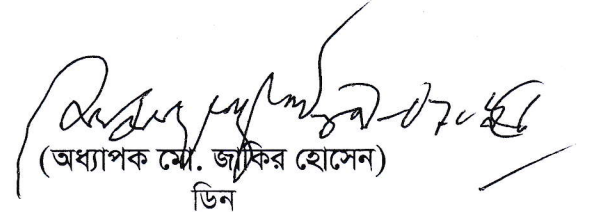 (অধ্যাপক মো. জাকির হোসেন)
ডিন